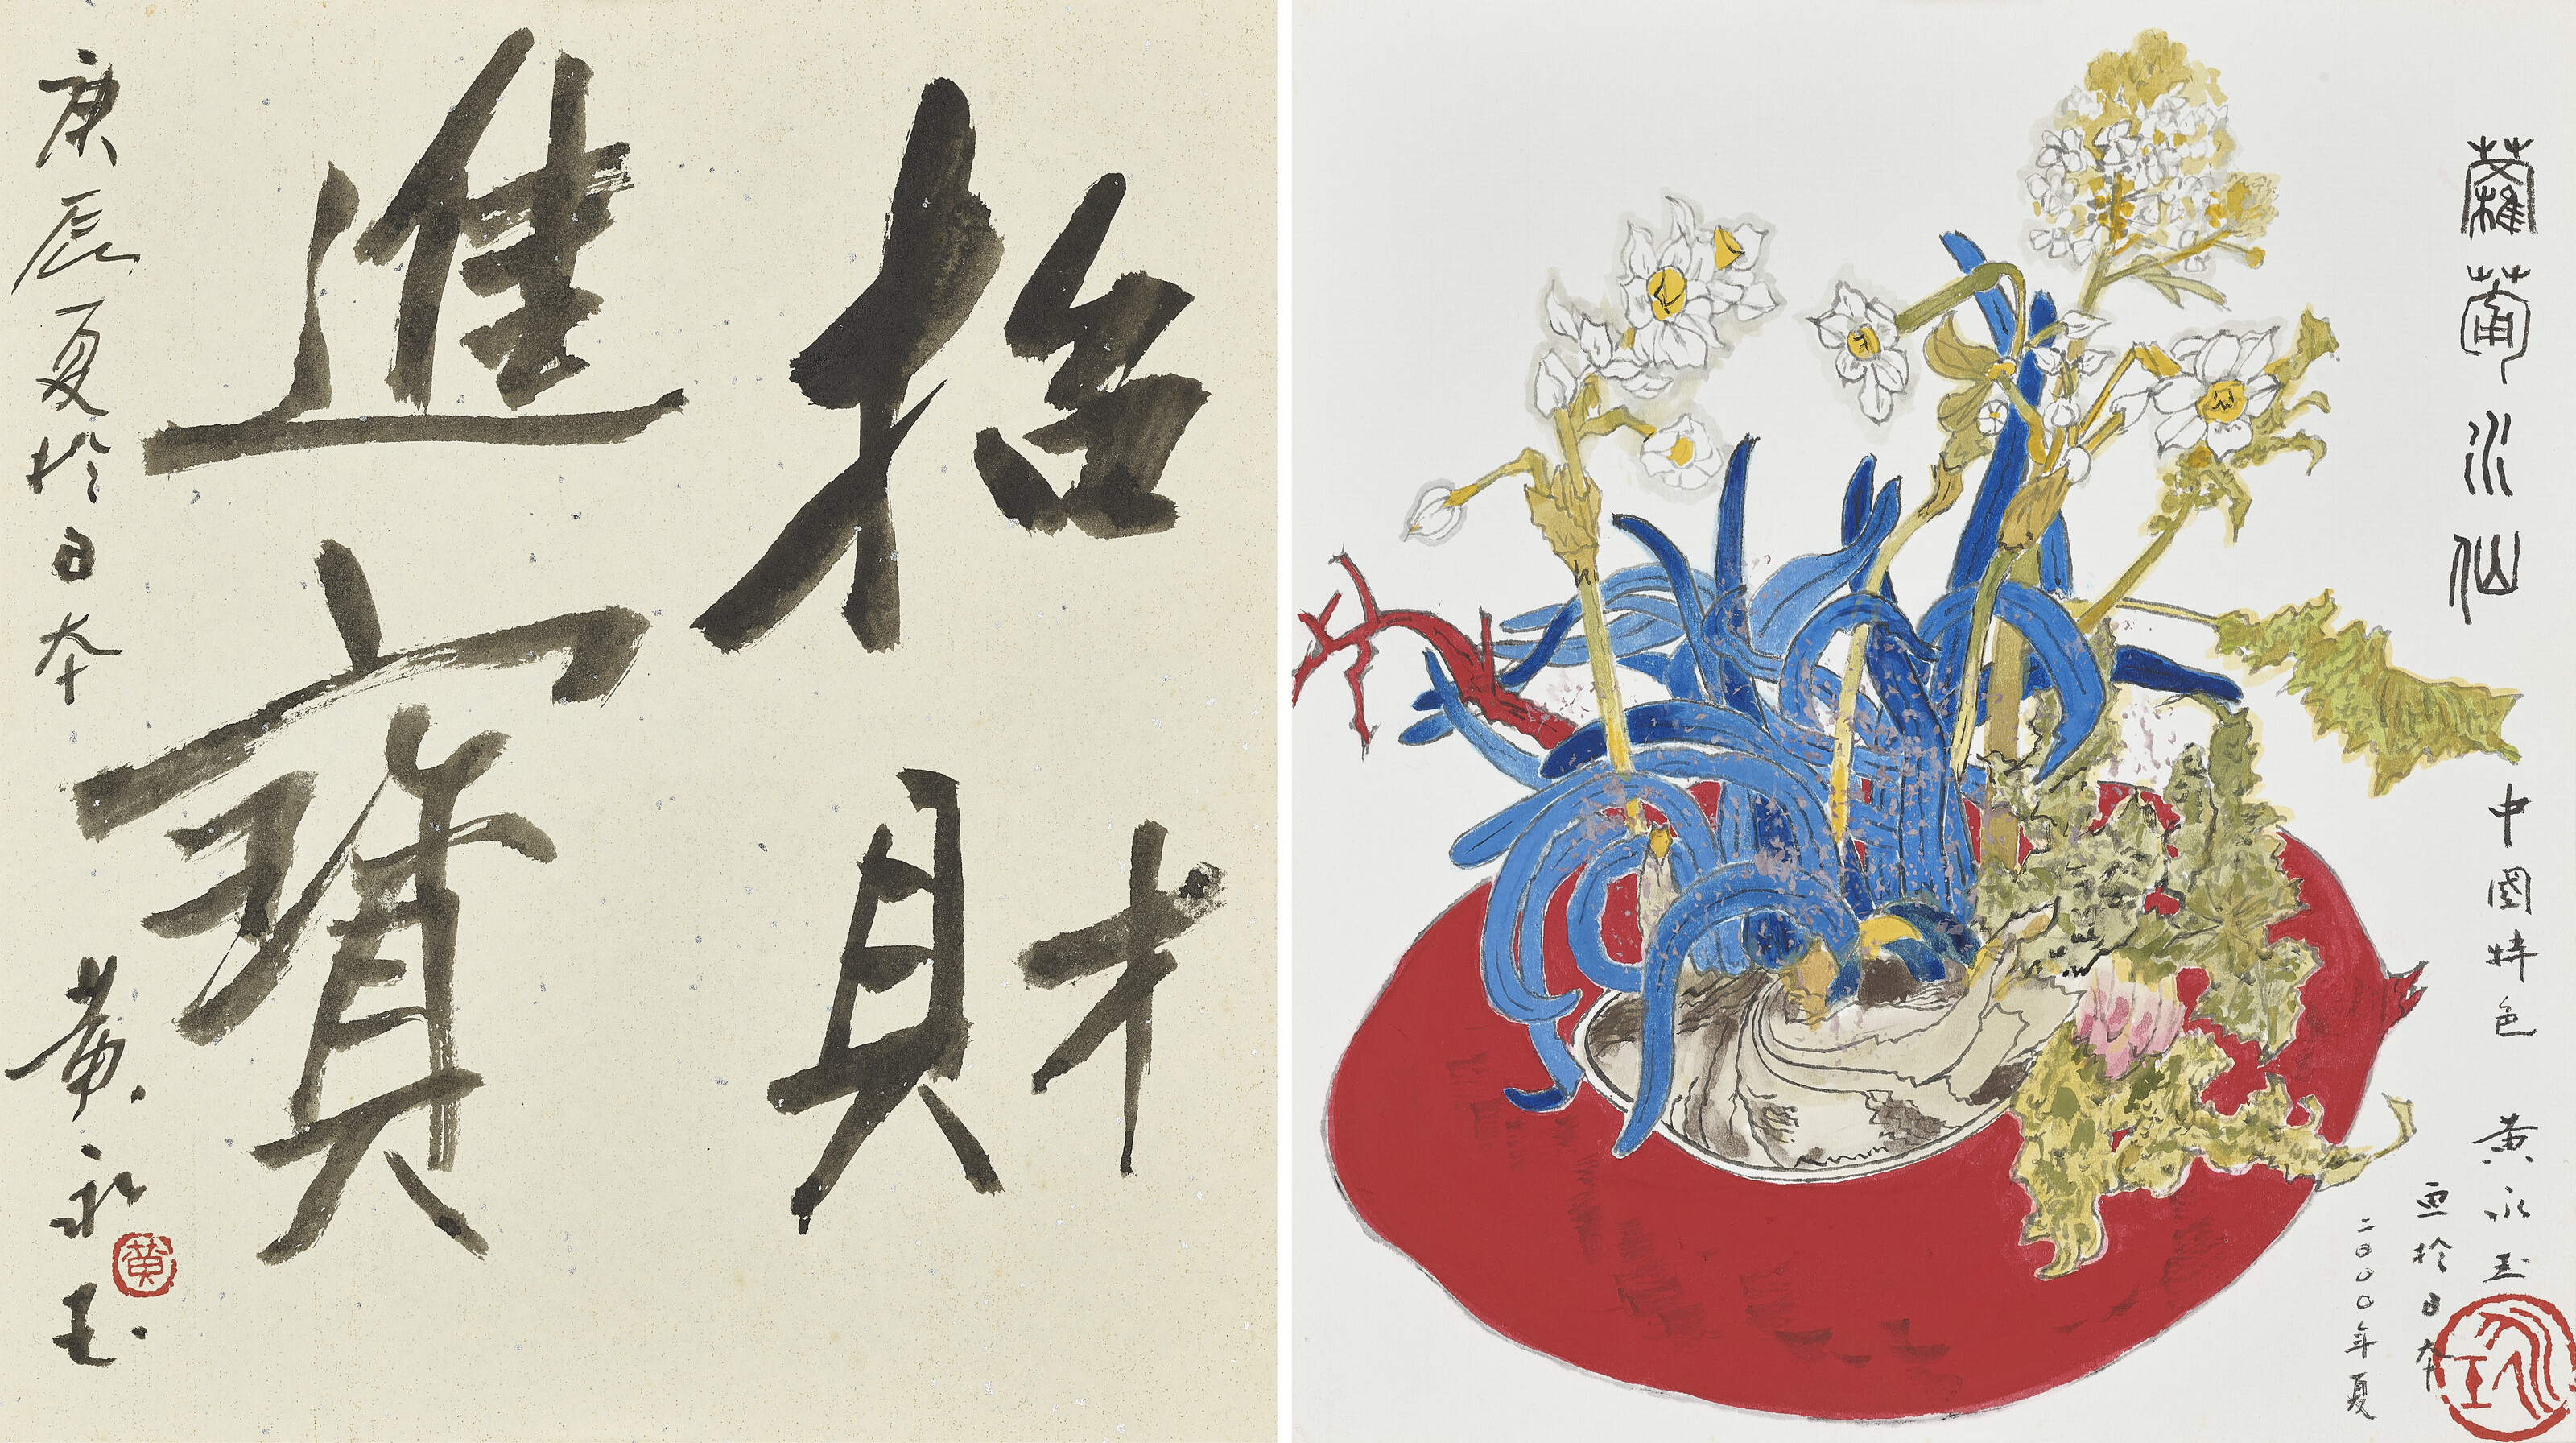 招財
進寶
庚辰夏於日本 黃永玉
黃
蘿蔔水仙 中國特色 黃永玉
画於日本
二〇〇〇年夏